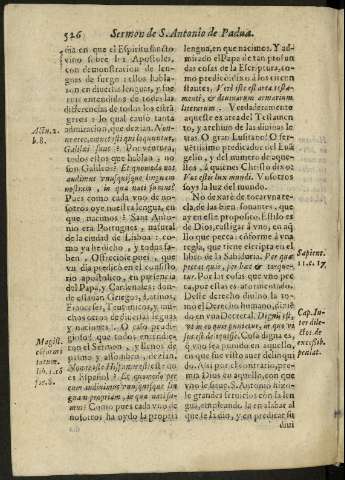 526 Sermon de S. Antonio de Padua.
dia en que el Espiritu sancto
vino sobre los Apostoles,
con demonstracion de len-
guas de fuego: ellos habla-
ron en diuersas lenguas, y fue-
ron entendidos de todos los estrã
geros: lo qual causo tanta
admiracion, que dezian. Non-
ne ecce omnes isti qui loquuntur,
Galilæi sunt? Por ventura,
todos estos que hablan, no
son Galileos? Et quomodo nos
audiuimus vnusquisque linguam
nostram, in qua nati sumus?
Pues como cada vno de no-
sotros oye nuestra lengua, en
que nacimos? Sant Anto-
nio era Portugues, natural
de la ciudad de Lisboa: co-
mo ya he dicho, y todos sa-
ben. Ofreciose pues, que
vn dia predicò en el consisto-
rio apostolico, en presencia
del Papa, y Cardenales: don-
de estauan Griegos, Latinos,
Franceses, Teutonicos, y mu-
chos otros de diuersas leguas
y naciones.
con el Sermon, y llenos de
pasmo y assombro, dezian.
Nonne iste Hispanus est? este no
es Español? Et quomodo nos
eum audiuimus vnusquisque lin-
guam propriam, in qua nati su-
mus? Como pues cada vno de
nosotros ha oydo la propria
lengua, en que nacimos. Y ad-
mirado el Papa de tan profun
das cosas de la Escriptura, co-
mo predicò dixo à los circun
stantes, Verè iste est arca testa-
menti, & diuinarum armarium
literarum. Verdaderamente
aqueste es arca del Testamen-
to, y archiuo de las diuinas le
tras. O gran Lusitano! O fer-
uentissimo predicador del Euã
gelio, y del numero de aque-
llos, à quienes Christo dixo:
Vos estis lux mundi. Vosotros
soys la luz del mundo.
No dexare de tocar vna re-
gla, de las bien sonantes, que
ay en este proposito. Estilo es
de Dios, castigar à vno, en a-
quello que pecca: cõforme à vna
regla, que tiene escripta en el
libro de la Sabiduria. Por quæ
peccat quis, per hæc & torque-
tur. Por las cosas que vno pec-
ca, por essas es atormentado.
Desse derecho diuino lo to-
mo el Derecho humano, diziẽ
do en vna Decretal.
que fue visto auer delinqui
do. Assi por el contrario, pre-
mia Dios en aquello, con que
vno le sirue. S. Antonio hizo-
le grandes seruicios con la len
gua, empleando la en alabar al
que se la dio, y en predicar su
diui
Acta. 2.
b. 8.
Sapient.
11. c. 17.